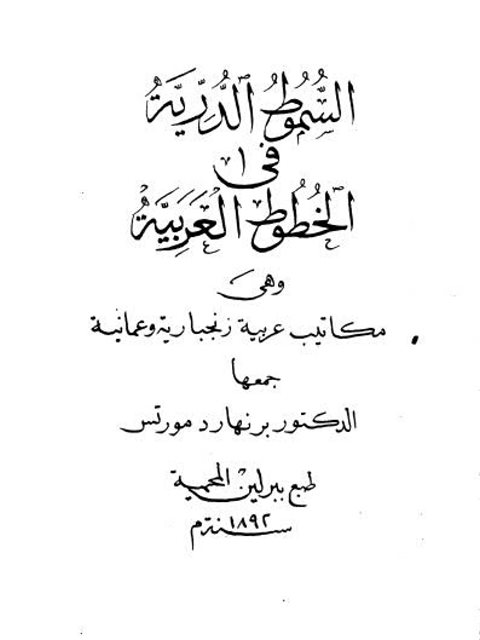 السُّمُوطُ الدُّرِّيَّةُ
فى
الخُطُوطِ العَرَبِيَّةْ
وهى
مكاتيب عربية زنجبارية وعمانية
جمعها
الدكتور برنهارد مورتس
طبع ببرلين المحمية
سنة ١٨٩٢ م